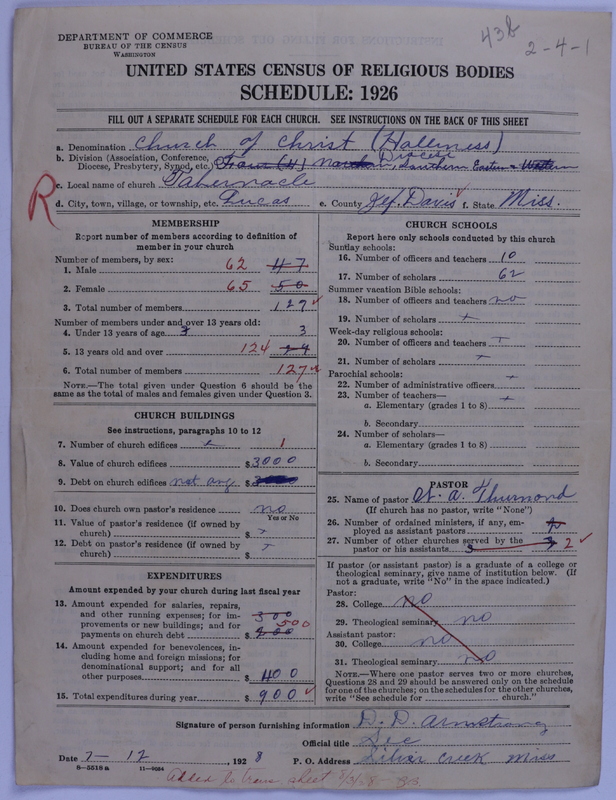 43B
2-4-1
DEPARTMENT OF COMMERCE
BUREAU OF THE CENSUS
WASHINGTON
UNITED STATES CENSUS OF RELIGIOUS BODIES
SCHEDULE: 1926
FILL OUT A SEPARATE SCHEDULE FOR EACH CHURCH. SEE INSTRUCTIONS ON THE BACK OF THIS SHEET
a. Denomination Church of Christ (Holiness)
b. Division (Association, Conference, Diocese
Diocese, Presbytery, Synod, etc.) Southern Eastern & Western
R
c. Local name of church Tabernacle
d. City, town, village, or township, etc. Lucas e. County Jef. Davis f. State Miss.
MEMBERSHIP
Report number of members according to definition of
member in your church
Number of members, by sex:
1. Male 62 47
2. Female 65 50
3. Total number of members 127
Number of members under and over 13 years old:
4. Under 13 years of age 3 3
5. 13 years old and over 124 94
6. Total number of members 127
NOTE.—The total given under Question 6 should be the
same as the total of males and females given under Question 3.
CHURCH BUILDINGS
See instructions, paragraphs 10 to 12
7. Number of church edifices 1
8. Value of church edifices $3000
9. Debt on church edifices not any $
10. Does church own pastor's residence no
Yes or No
11. Value of pastor's residence (if owned by
church) $
12. Debt on pastor's residence (if owned by
church) $
EXPENDITURES
Amount expended by your church during last fiscal year
13. Amount expended for salaries, repairs,
and other running expenses; for im- 300
provements or new buildings; and for 500
payments on church debt $
14. Amount expended for benevolences, in-
cluding home and foreign missions; for
denominational support; and for all
other purposes $400
15. Total expenditures during year $900
CHURCH SCHOOLS
Report here only schools conducted by this church
Sunday schools:
16. Number of officers and teachers 10
17. Number of scholars 62
Summer vacation Bible schools:
18. Number of officers and teachers no
19. Number of scholars
Week-day religious schools:
20. Number of officers and teachers
21. Number of scholars
Parochial schools:
22. Number of administrative officers
23. Number of teachers—
a. Elementary (grades 1 to 8)
b. Secondary
24. Number of scholars—
a. Elementary (grades 1 to 8)
b. Secondary
PASTOR
25. Name of pastor W. A. Thurmond
(If church has no pastor, write "None")
26. Number of ordained ministers, if any, em-
ployed as assistant pastors
27. Number of other churches served by the
pastor or his assistants 3 3 2
If pastor (or assistant pastor) is a graduate of a college or
theological seminary, give name of institution below. (If
not a graduate, write "No" in the space indicated.)
Pastor:
28. College no
29. Theological seminary no
Assistant pastor:
30. College no
31. Theological seminary no
NOTE.—Where one pastor serves two or more churches,
Questions 28 and 29 should be answered only on the schedule
for one of the churches; on the schedules for the other churches,
write "See schedule for church."
Signature of person furnishing information D. D. Armstrong
Official title Sec
Date 7-12, 1928 P. O. Address Silver Creek Miss
8-5518a 11-9034
Added to trans. sheet 8/3/28